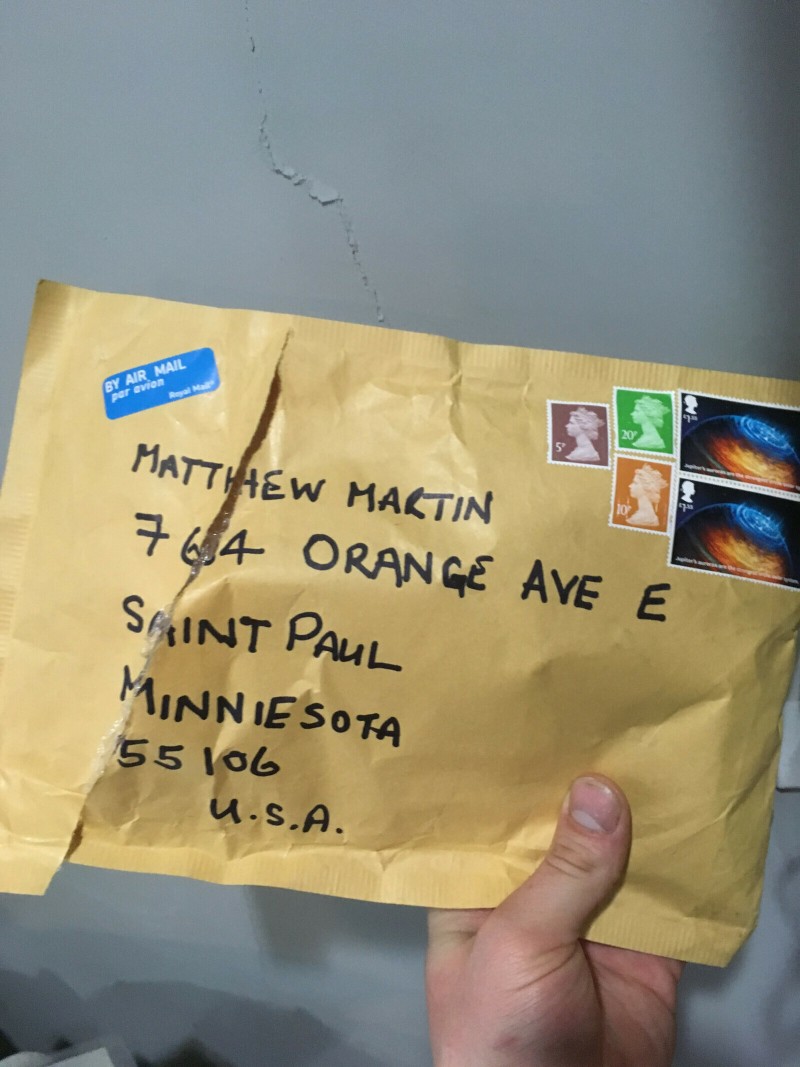 BY AIR MAIL
par avion
Royal Mail®
5P
20P
10P
MATTHEW MARTIN
764 ORANGE AVE E
SAINT PAUL
MINNIESOTA
55106
U.S.A.